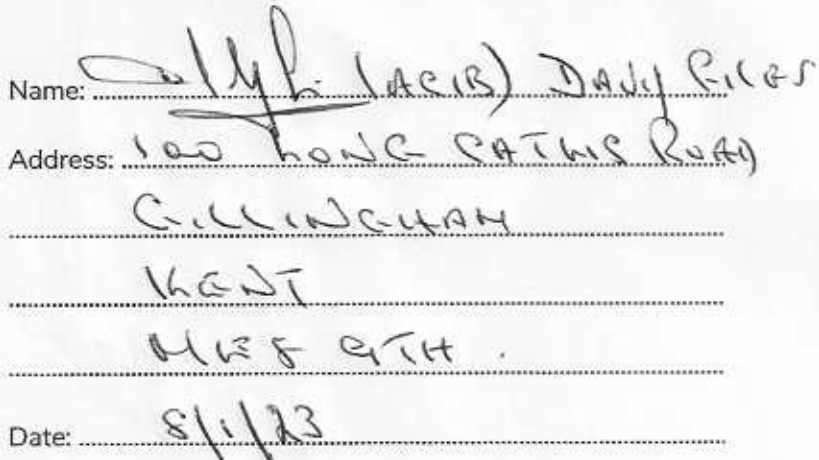 Name: (ACIB) DAVID GILES
Address: 100 LONG CATLIS ROAD
GILLINGHAM
KENT
ME8 9TH.
Date: 8/1/23